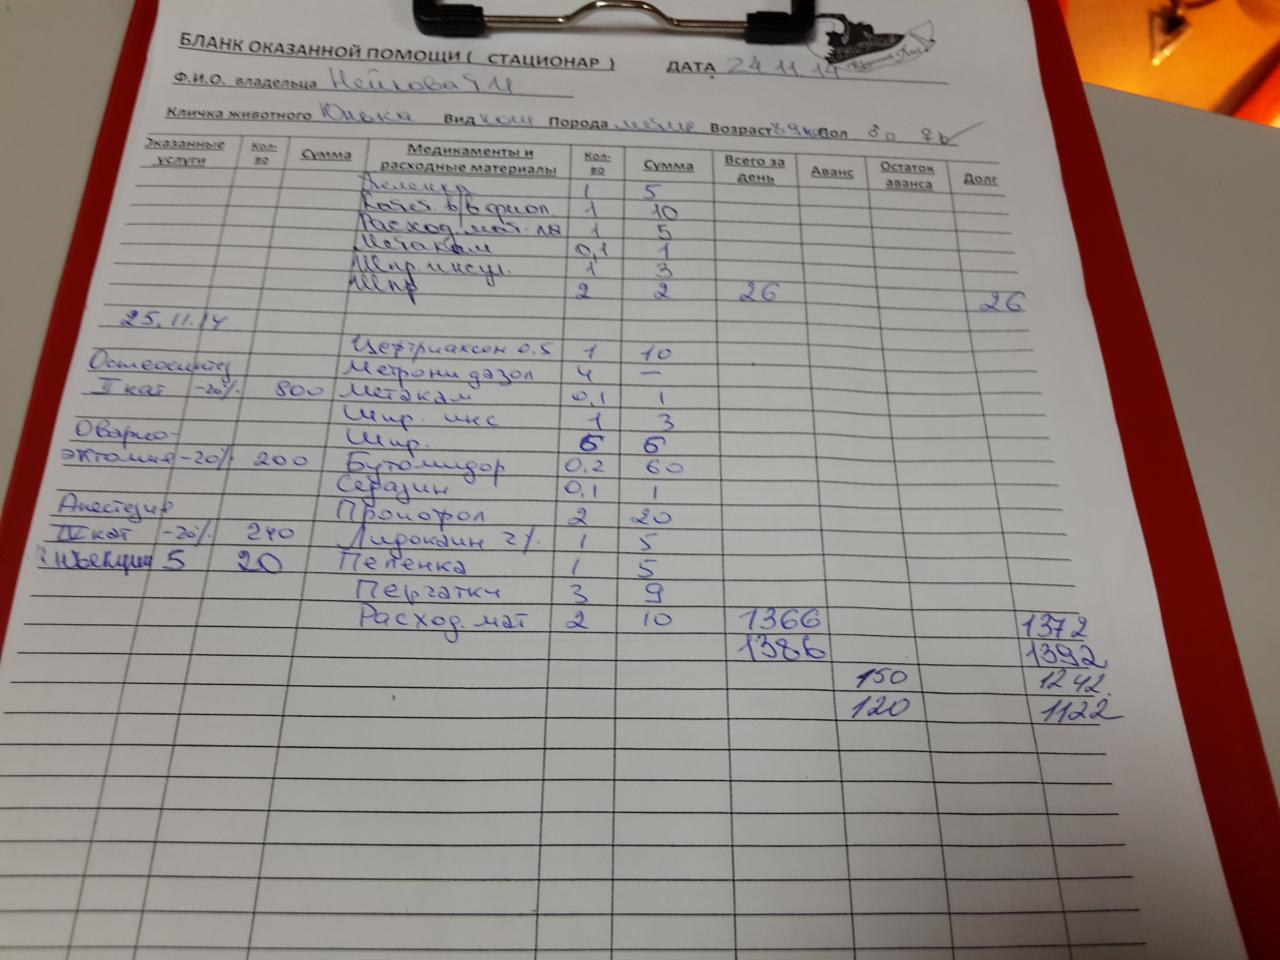 БЛАНК ОКАЗАННОЙ ПОМОЩИ ( СТАЦИОНАР ) ДАТА 24.11.14
Ф.И.О. владельца
Кличка животного Вид кош Порода Возраст Пол ♂ ♀
Оказанные услуги Кол-во Сумма Медикаменты и расходные материалы Кол-во Сумма Всего за день Аванс Остаток аванса Долг
Пеленка 1 5
Катет. в/в фиол. 1 10
Расход. мат. 1 5
Метакам 0,1 1
Шпр. инсул. 1 3
Шпр 2 2 26 26
25.11.14
Цефтриаксон 0.5 1 10
Остеосинтез Метронидазол 4 —
II кат -20% 800 Метакам 0,1 1
Шпр. инс 1 3
Оварио- Шпр. 6 6
эктомия -20% 200 Бутомидор 0,2 60
Седазин 0,1 1
Анестезия Пропофол 2 20
IV кат -20% 240 Лидокаин 2% 1 5
Инъекции 5 20 Пеленка 1 5
Перчатки 3 9
Расход. мат 2 10 1366 1372
1386 1392
150 1242.
120 1122